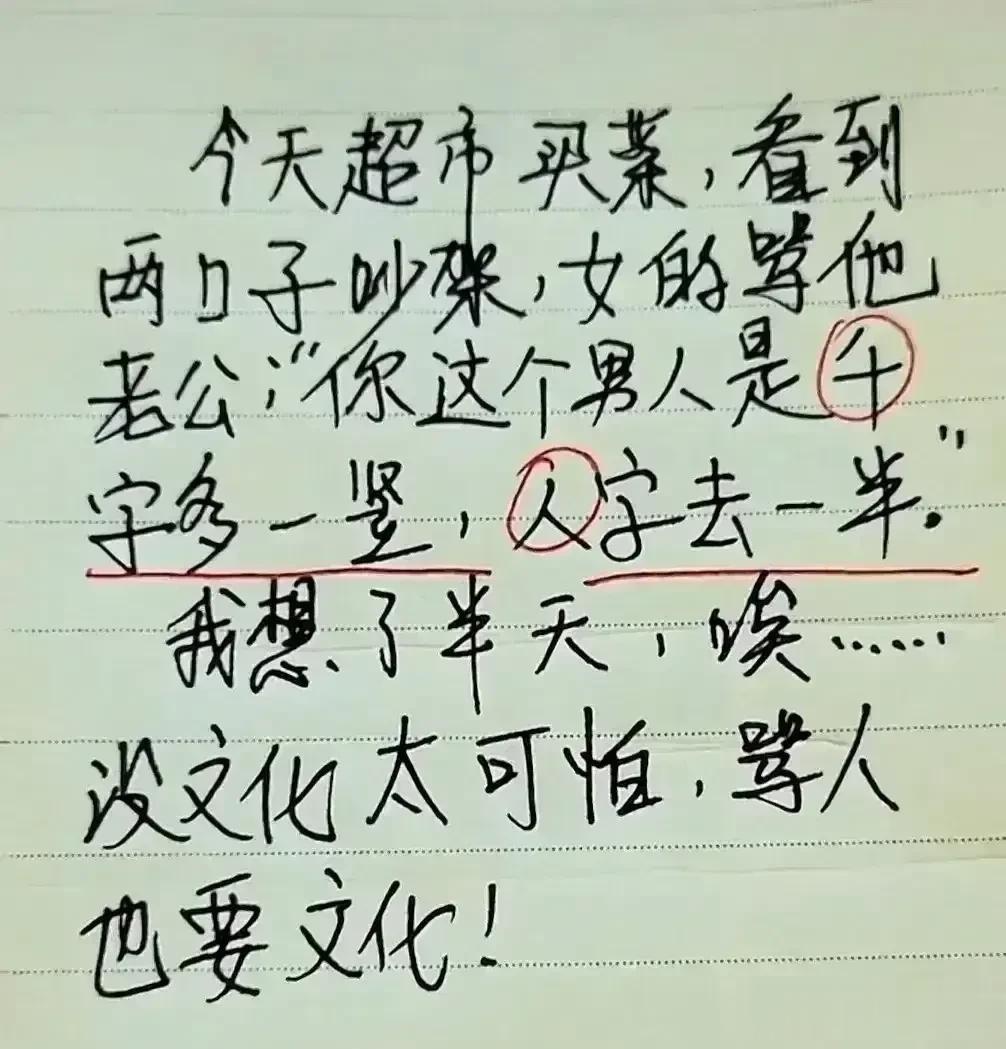 今天超市买菜，看到
两口子吵架，女的骂他
老公：“你这个男人是千
字多一竖，人字去一半。”
我想了半天，唉……
没文化太可怕，骂人
也要文化！